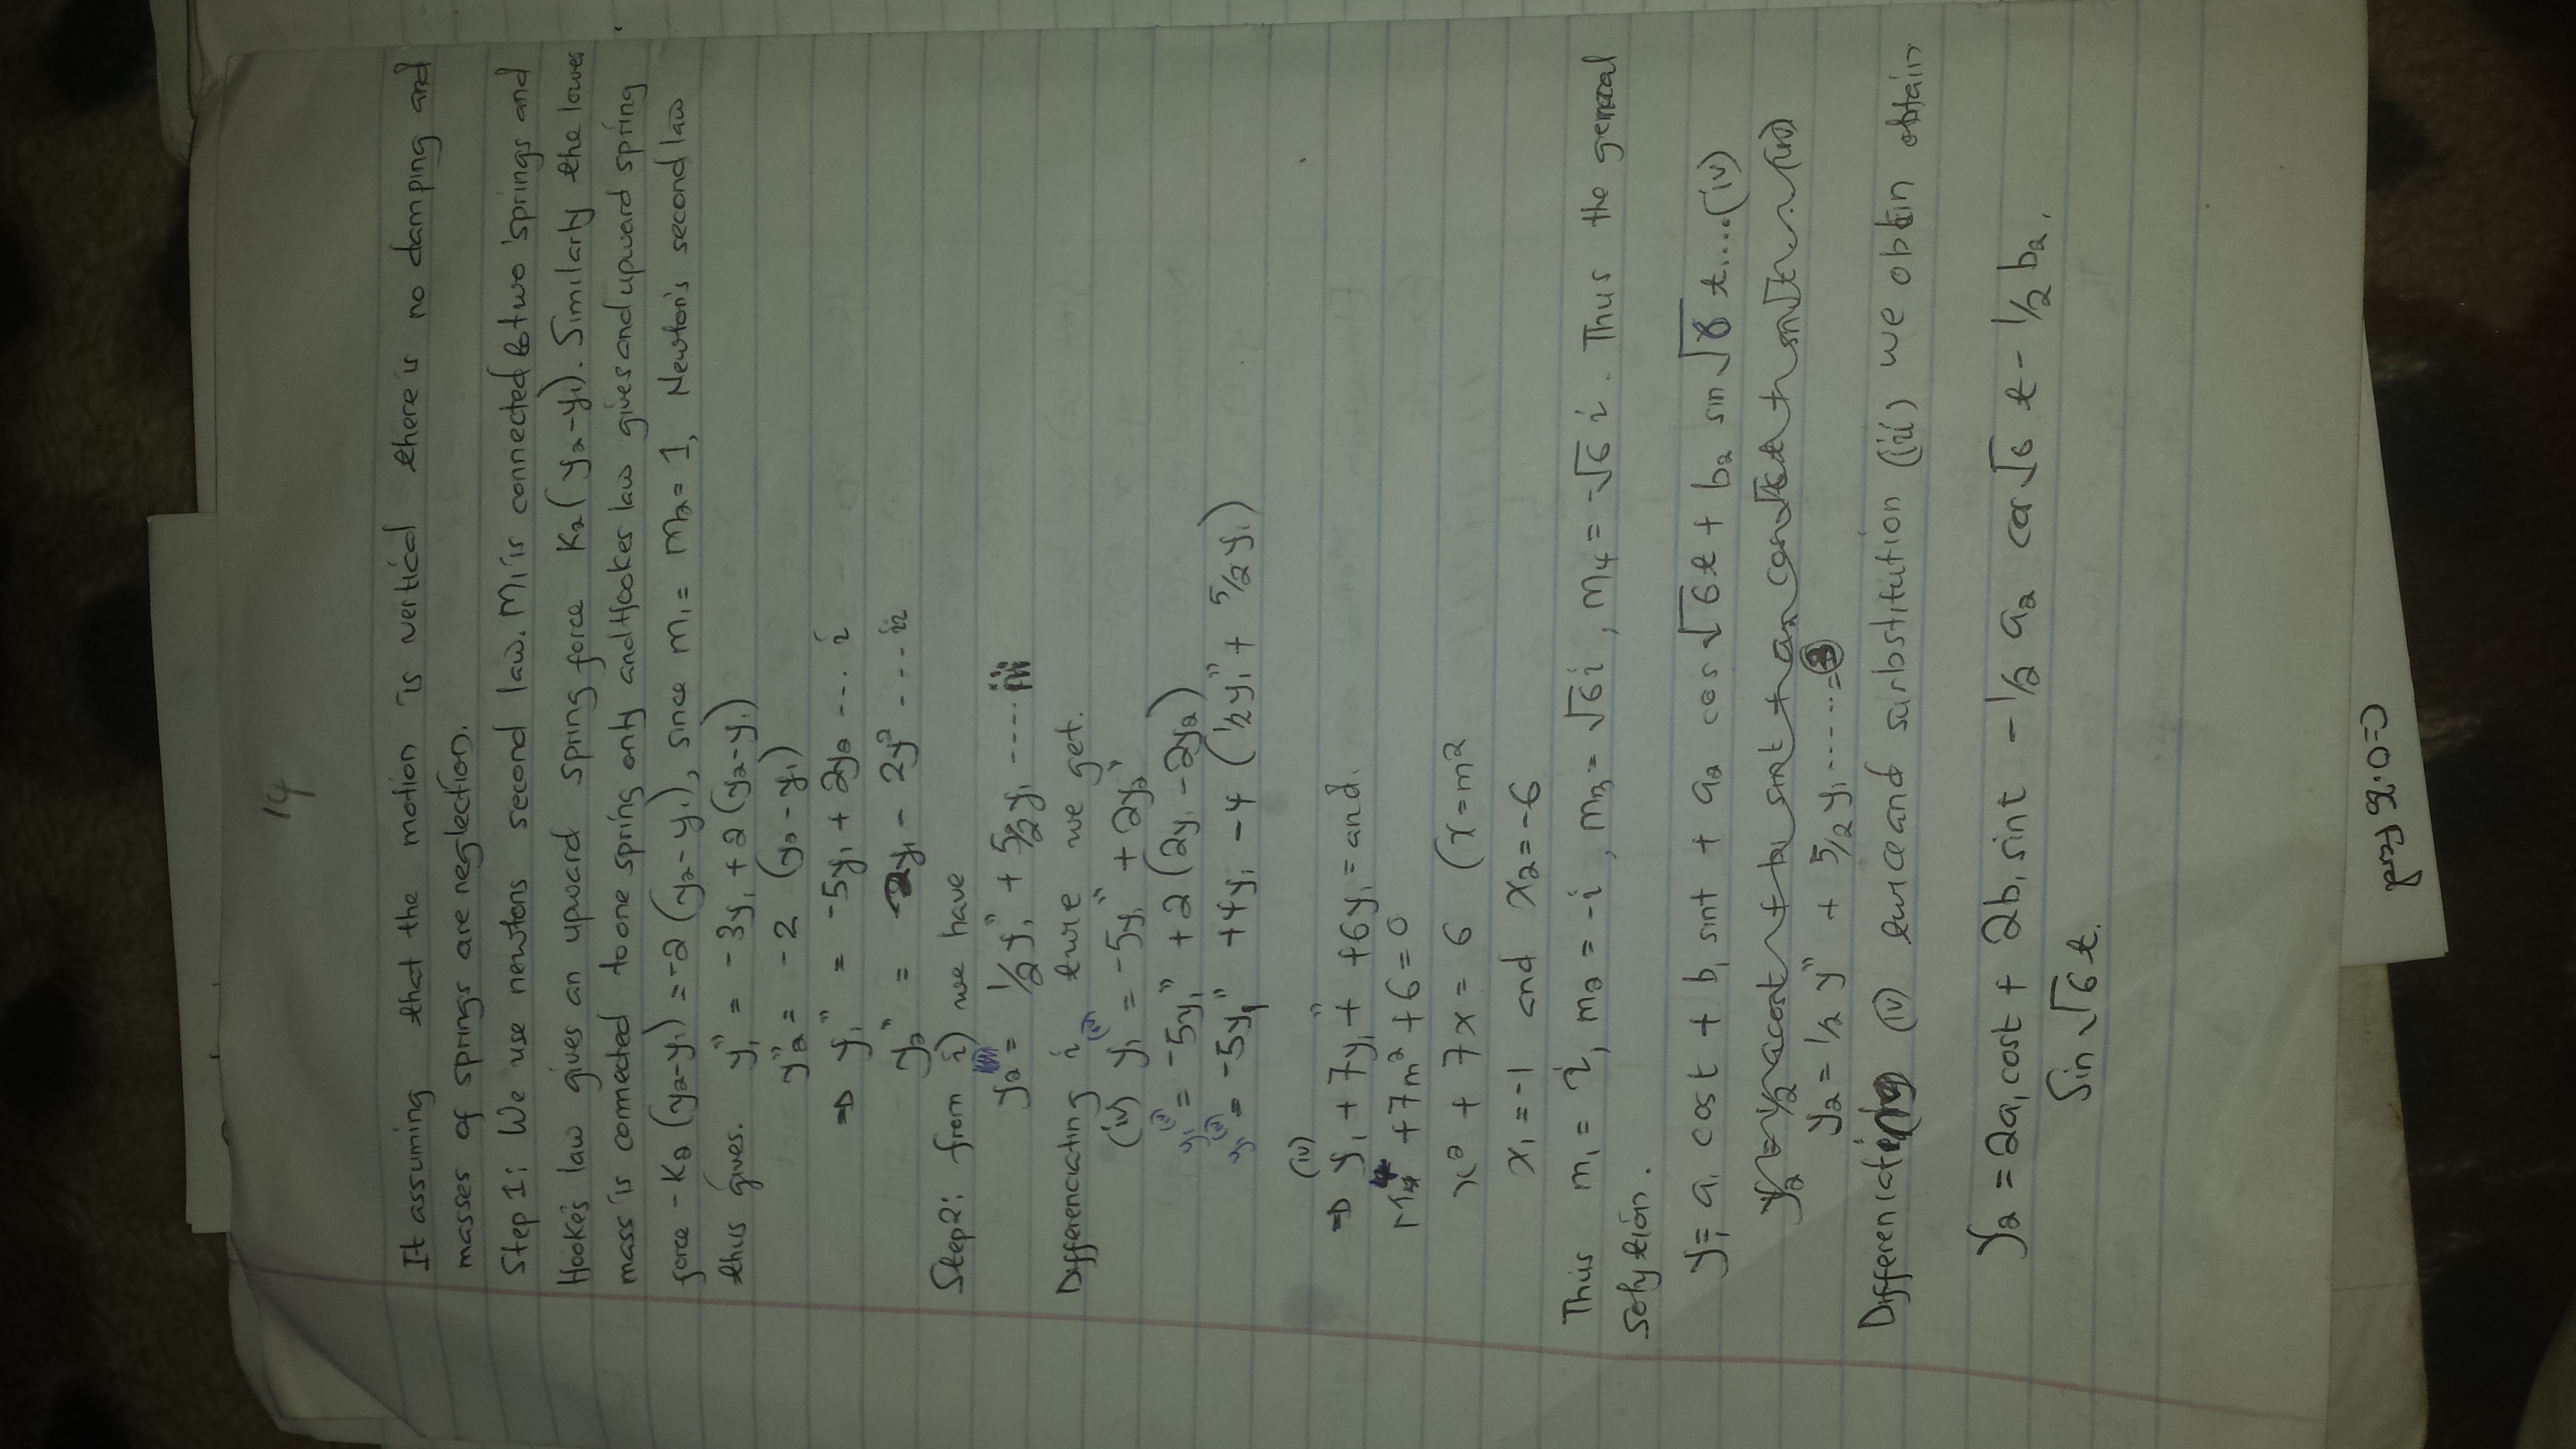 14
It assuming that the motion is vertical there is no damping and
masses of springs are neglection.
Step 1: We use newtons second law. M1 is connected to two springs and
Hooke's law gives an upward spring force K2(y2-y1). Similarly the lower
mass is connected to one spring only and Hookes law gives and upward spring
force - K2(y2-y1) = -2(y2-y1), since m1 = m2 = 1, Newton's second law
thus gives. y1'' = -3y1 + 2(y2-y1)
y2'' = -2 (y2-y1)
⇒ y1'' = -5y1 + 2y2 ... i
y2'' = 2y1 - 2y2 .... ii
Step2: from i) we have
y2 = 1/2 y1'' + 5/2 y1 ..... iii
Differenciating i twice we get.
(iv) y1 = -5y1'' + 2y2''
y1 = -5y1'' + 2(2y1 - 2y2)
y1 = -5y1'' + 4y1 - 4(1/2 y1'' + 5/2 y1)
⇒ y1(iv) + 7y1'' + 6y1 = and.
m4 + 7m2 + 6 = 0
x2 + 7x = 6 (x = m2
x1 = -1 and x2 = -6
Thus m1 = i, m2 = -i, m3 = √6 i, m4 = -√6 i. Thus the general
solution.
y1 = a1 cost + b1 sint + a2 cos √6 t + b2 sin √6 t....(iv)
y2 = 1/2 y'' + 5/2 y1 ......
Differeniating (iv) twice and surbstitution (iii) we obtin obtain
y2 = 2a1 cost + 2b1 sint - 1/2 a2 cos √6 t - 1/2 b2.
Sin √6 t.